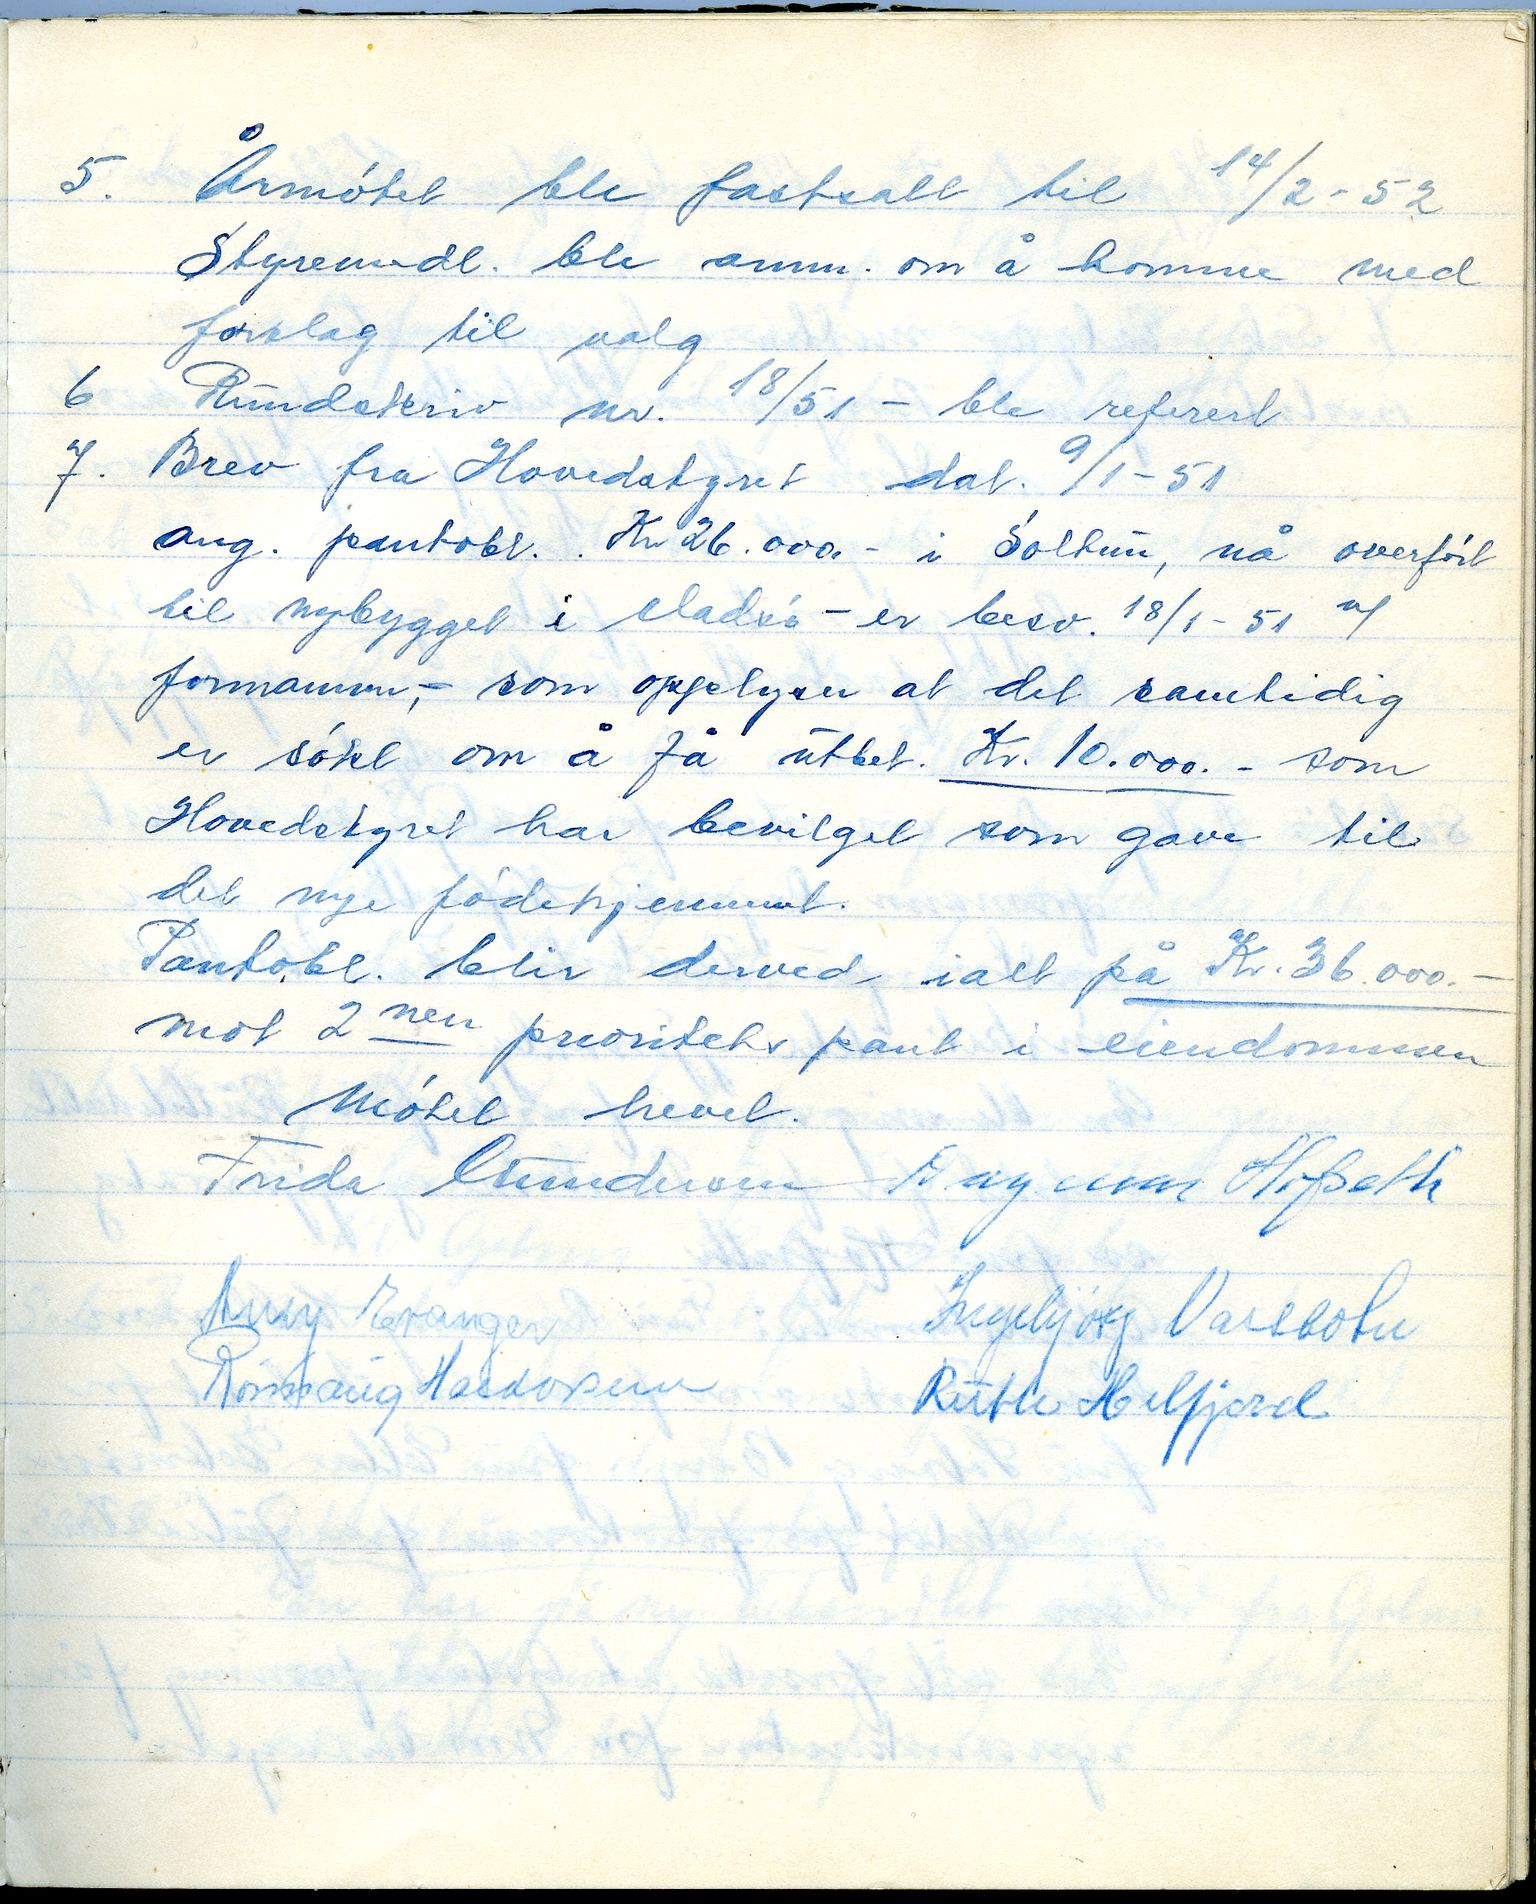 5. Årmötet ble fastsatt til 14/2-52
Styremedl. ble anm. om å komme med
forslag til valg
6 Rundskriv nr. 18/51 - ble referert
7. Brev fra Hovedstyret dat. 9/1-51
ang. pantobl. Kr 26.000.- i Soltun, nå overfört
til nybygget i - er besv. 18/1-51 af
formannen,- som opplyser at det samtidig
er sökt om å få utbet. Kr. 10.000.- som
Hovedstyret har bevilget som gave til
det nye födehjemmet.
Pantobl. blir derved ialt på Kr. 36.000.-
mot 2nen prioritets pant i eiendommen
Mötet hevet.
Frida Gundersen Hofseth
Evanger Ingebjörg
Ruth